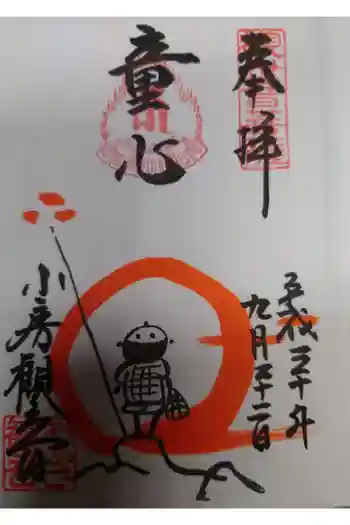 奉拝
童心
平成三十年
九月二十二日
小房観音